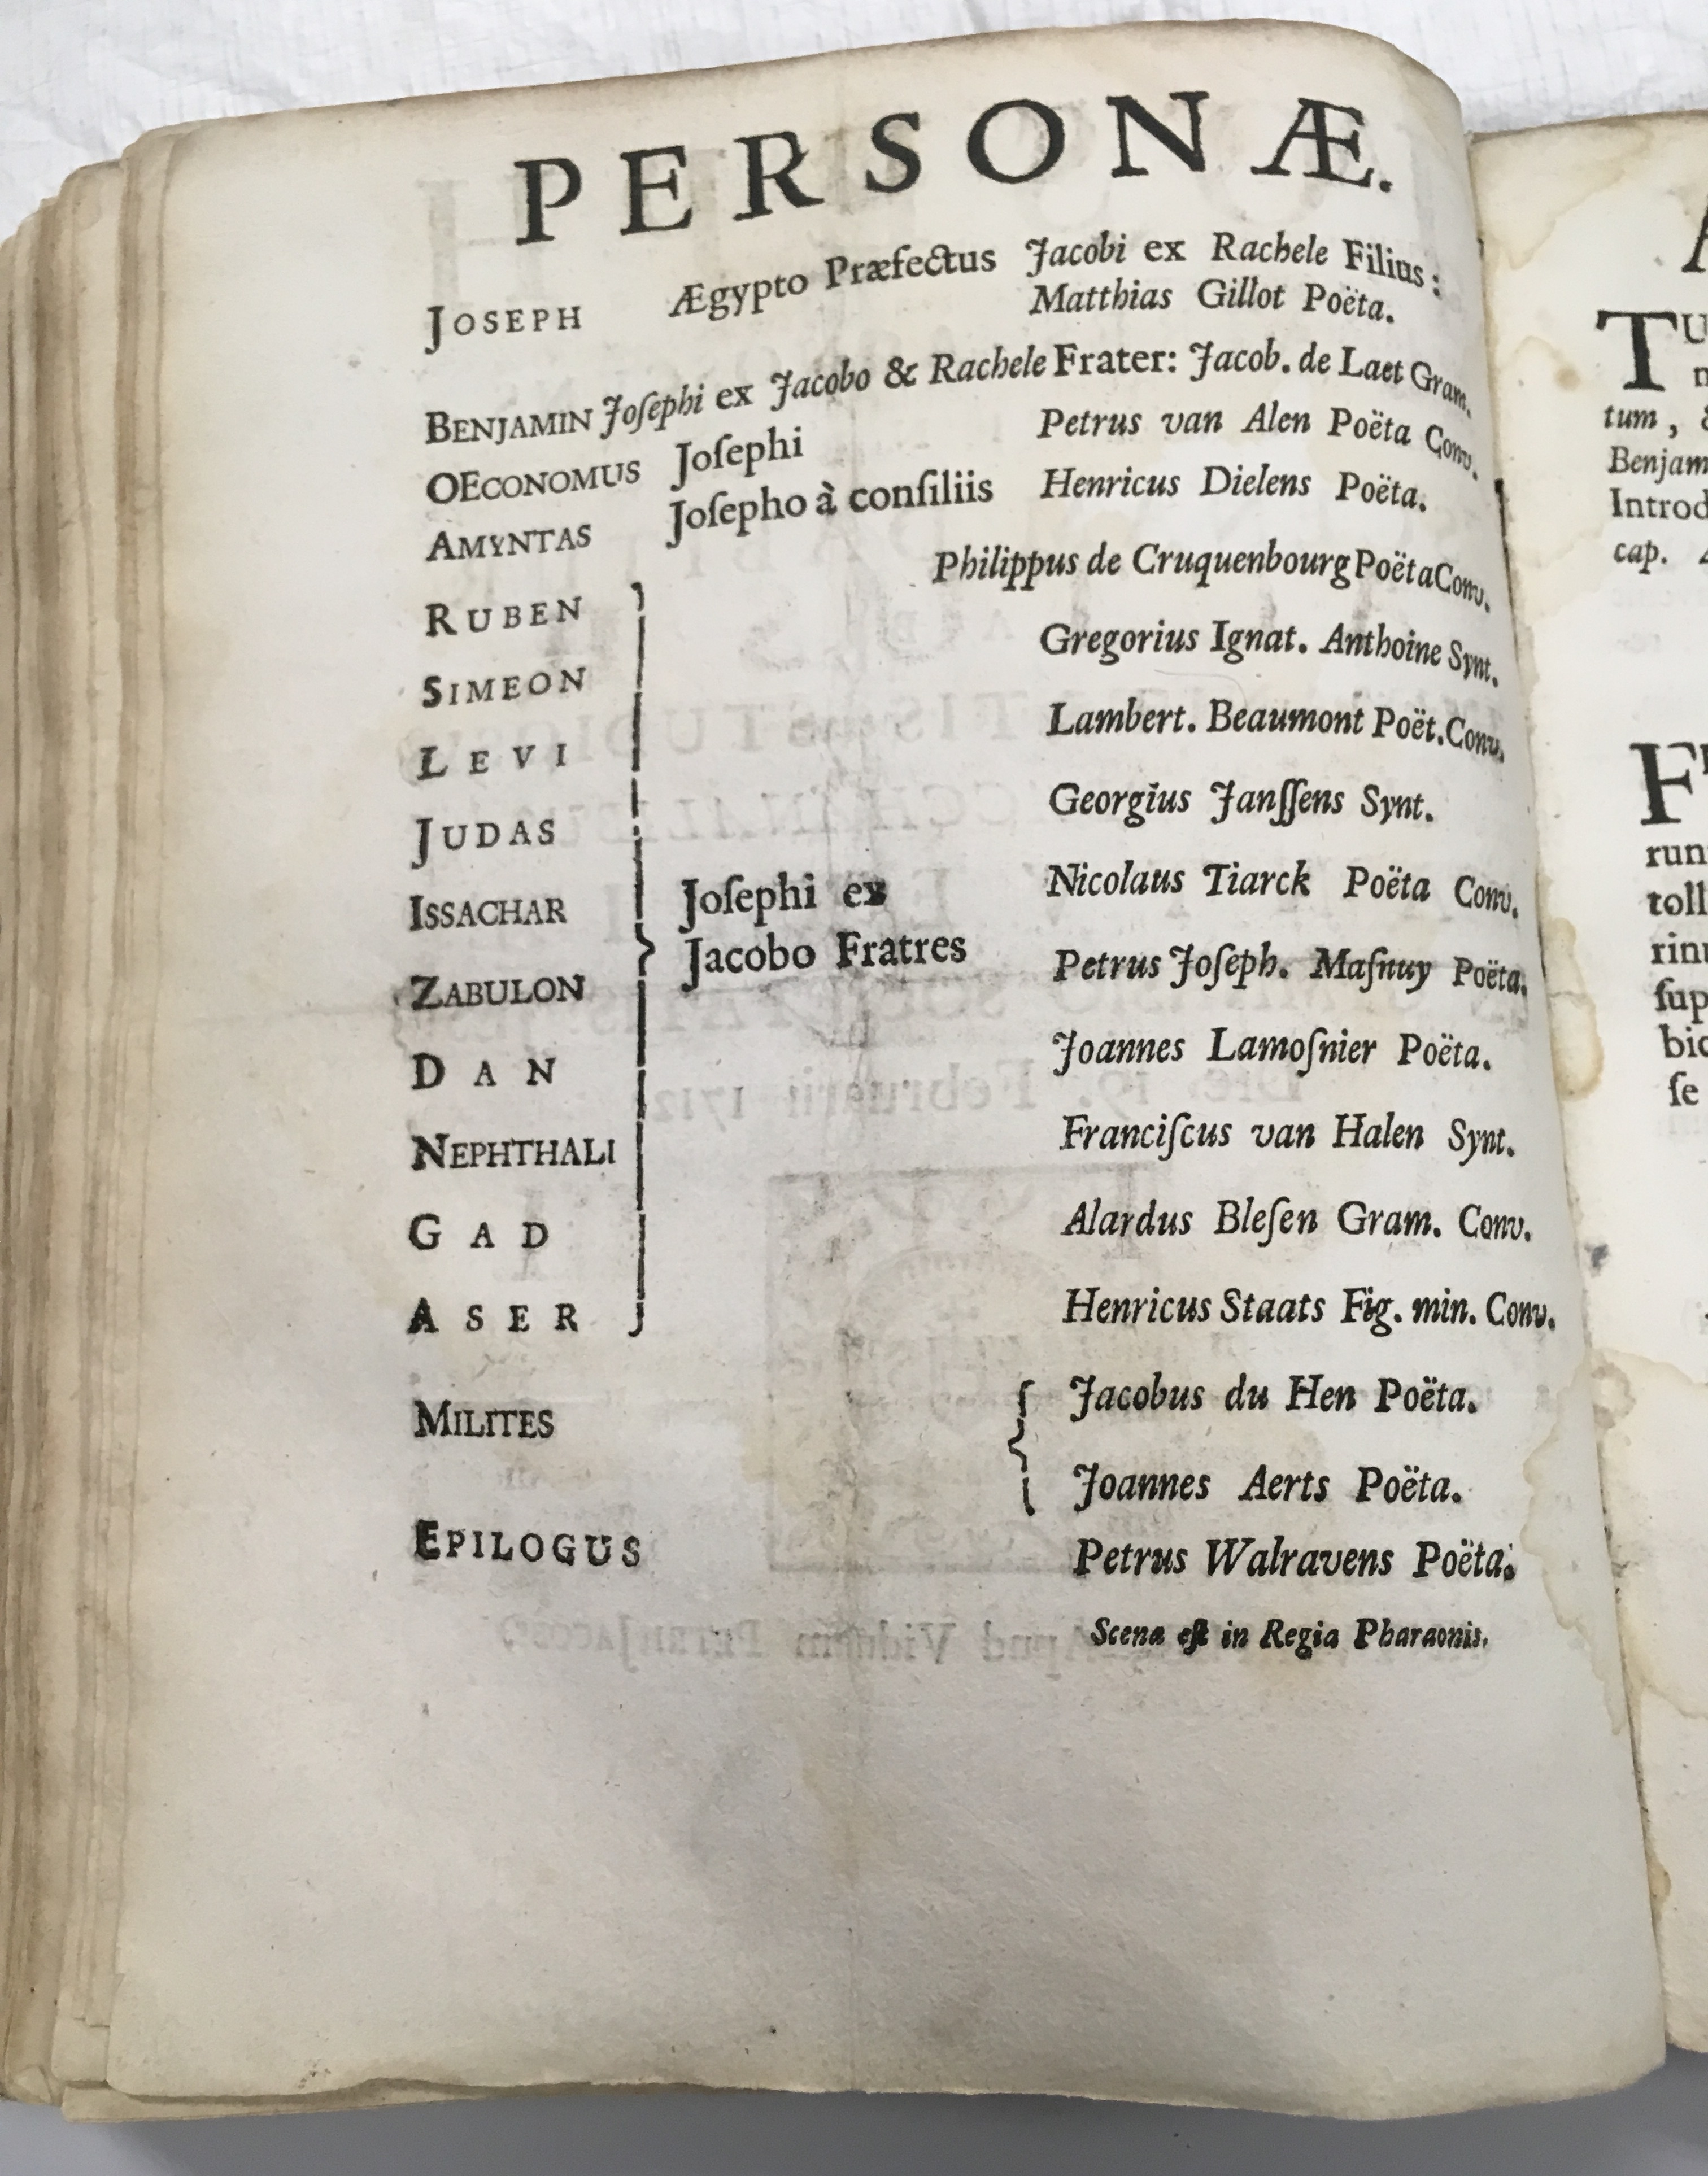 PERSONÆ.
JOSEPH Ægypto Præfectus Jacobi ex Rachele Filius:
Matthias Gillot Poëta.
BENJAMIN Joſephi ex Jacobo & Rachele Frater: Jacob. de Laet Gram.
OECONOMUS Joſephi Petrus van Alen Poëta Conv.
AMYNTAS Joſepho à conſiliis Henricus Dielens Poëta.
RUBEN Philippus de Cruquenbourg Poëta Conv.
SIMEON Gregorius Ignat. Anthoine Synt.
LEVI Lambert. Beaumont Poët. Conv.
JUDAS Georgius Janſſens Synt.
ISSACHAR Joſephi ex Nicolaus Tiarck Poëta Conv.
ZABULON Jacobo Fratres Petrus Joſeph. Maſnuy Poëta.
DAN Joannes Lamoſnier Poëta.
NEPHTHALI Franciſcus van Halen Synt.
GAD Alardus Bleſen Gram. Conv.
ASER Henricus Staats Fig. min. Conv.
MILITES Jacobus du Hen Poëta.
Joannes Aerts Poëta.
EPILOGUS Petrus Walravens Poëta.
Scena eſt in Regia Pharaonis.
tum,
Benjam
Introd
cap.
run
toll
rint
ſup
bic
ſe